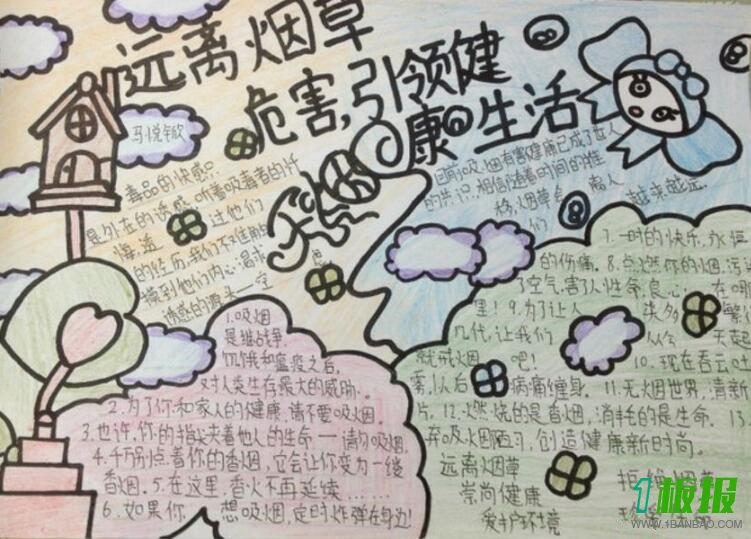 远离烟草
危害,引领健
康生活
马悦欣
毒品的快感只
是外在的诱惑,听着吸毒者的忏
悔,造 过他们
的经历,我们不难触
摸到他们内心渴求
诱惑的源头—空虚
目前,吸烟有害健康已成了世人
的共识,相信随着时间的推
移,烟草会 离人
们 越来越远.
1.吸烟
是继战争,
饥饿和瘟疫之后,
对人类生存最大的威胁.
2.为了你和家人的健康,请不要吸烟.
3.也许,你的手指夹着他人的生命—请勿吸烟.
4.千万别点着你的香烟,它会让你变为一缕
香烟.5.在这里,香火不再延续……
6.如果你 想吸烟,定时炸弹在身边!
7.一时的快乐,永恒
的伤痛.8.点燃你的烟,污
了空气,害了人性命,良心 在哪
里!9.为了让人 类多 繁
几代,让我们 从今 天起
就戒烟 吧!10.现在吞云吐
雾,从后 病痛缠身.11.无烟世界,清新
片.12.燃烧的是香烟,消耗的是生命.13.
弃吸烟陋习,创造健康新时尚.
远离烟草
崇尚健康
爱护环境
拒绝烟草
1板报
WWW.1BANBAO.COM